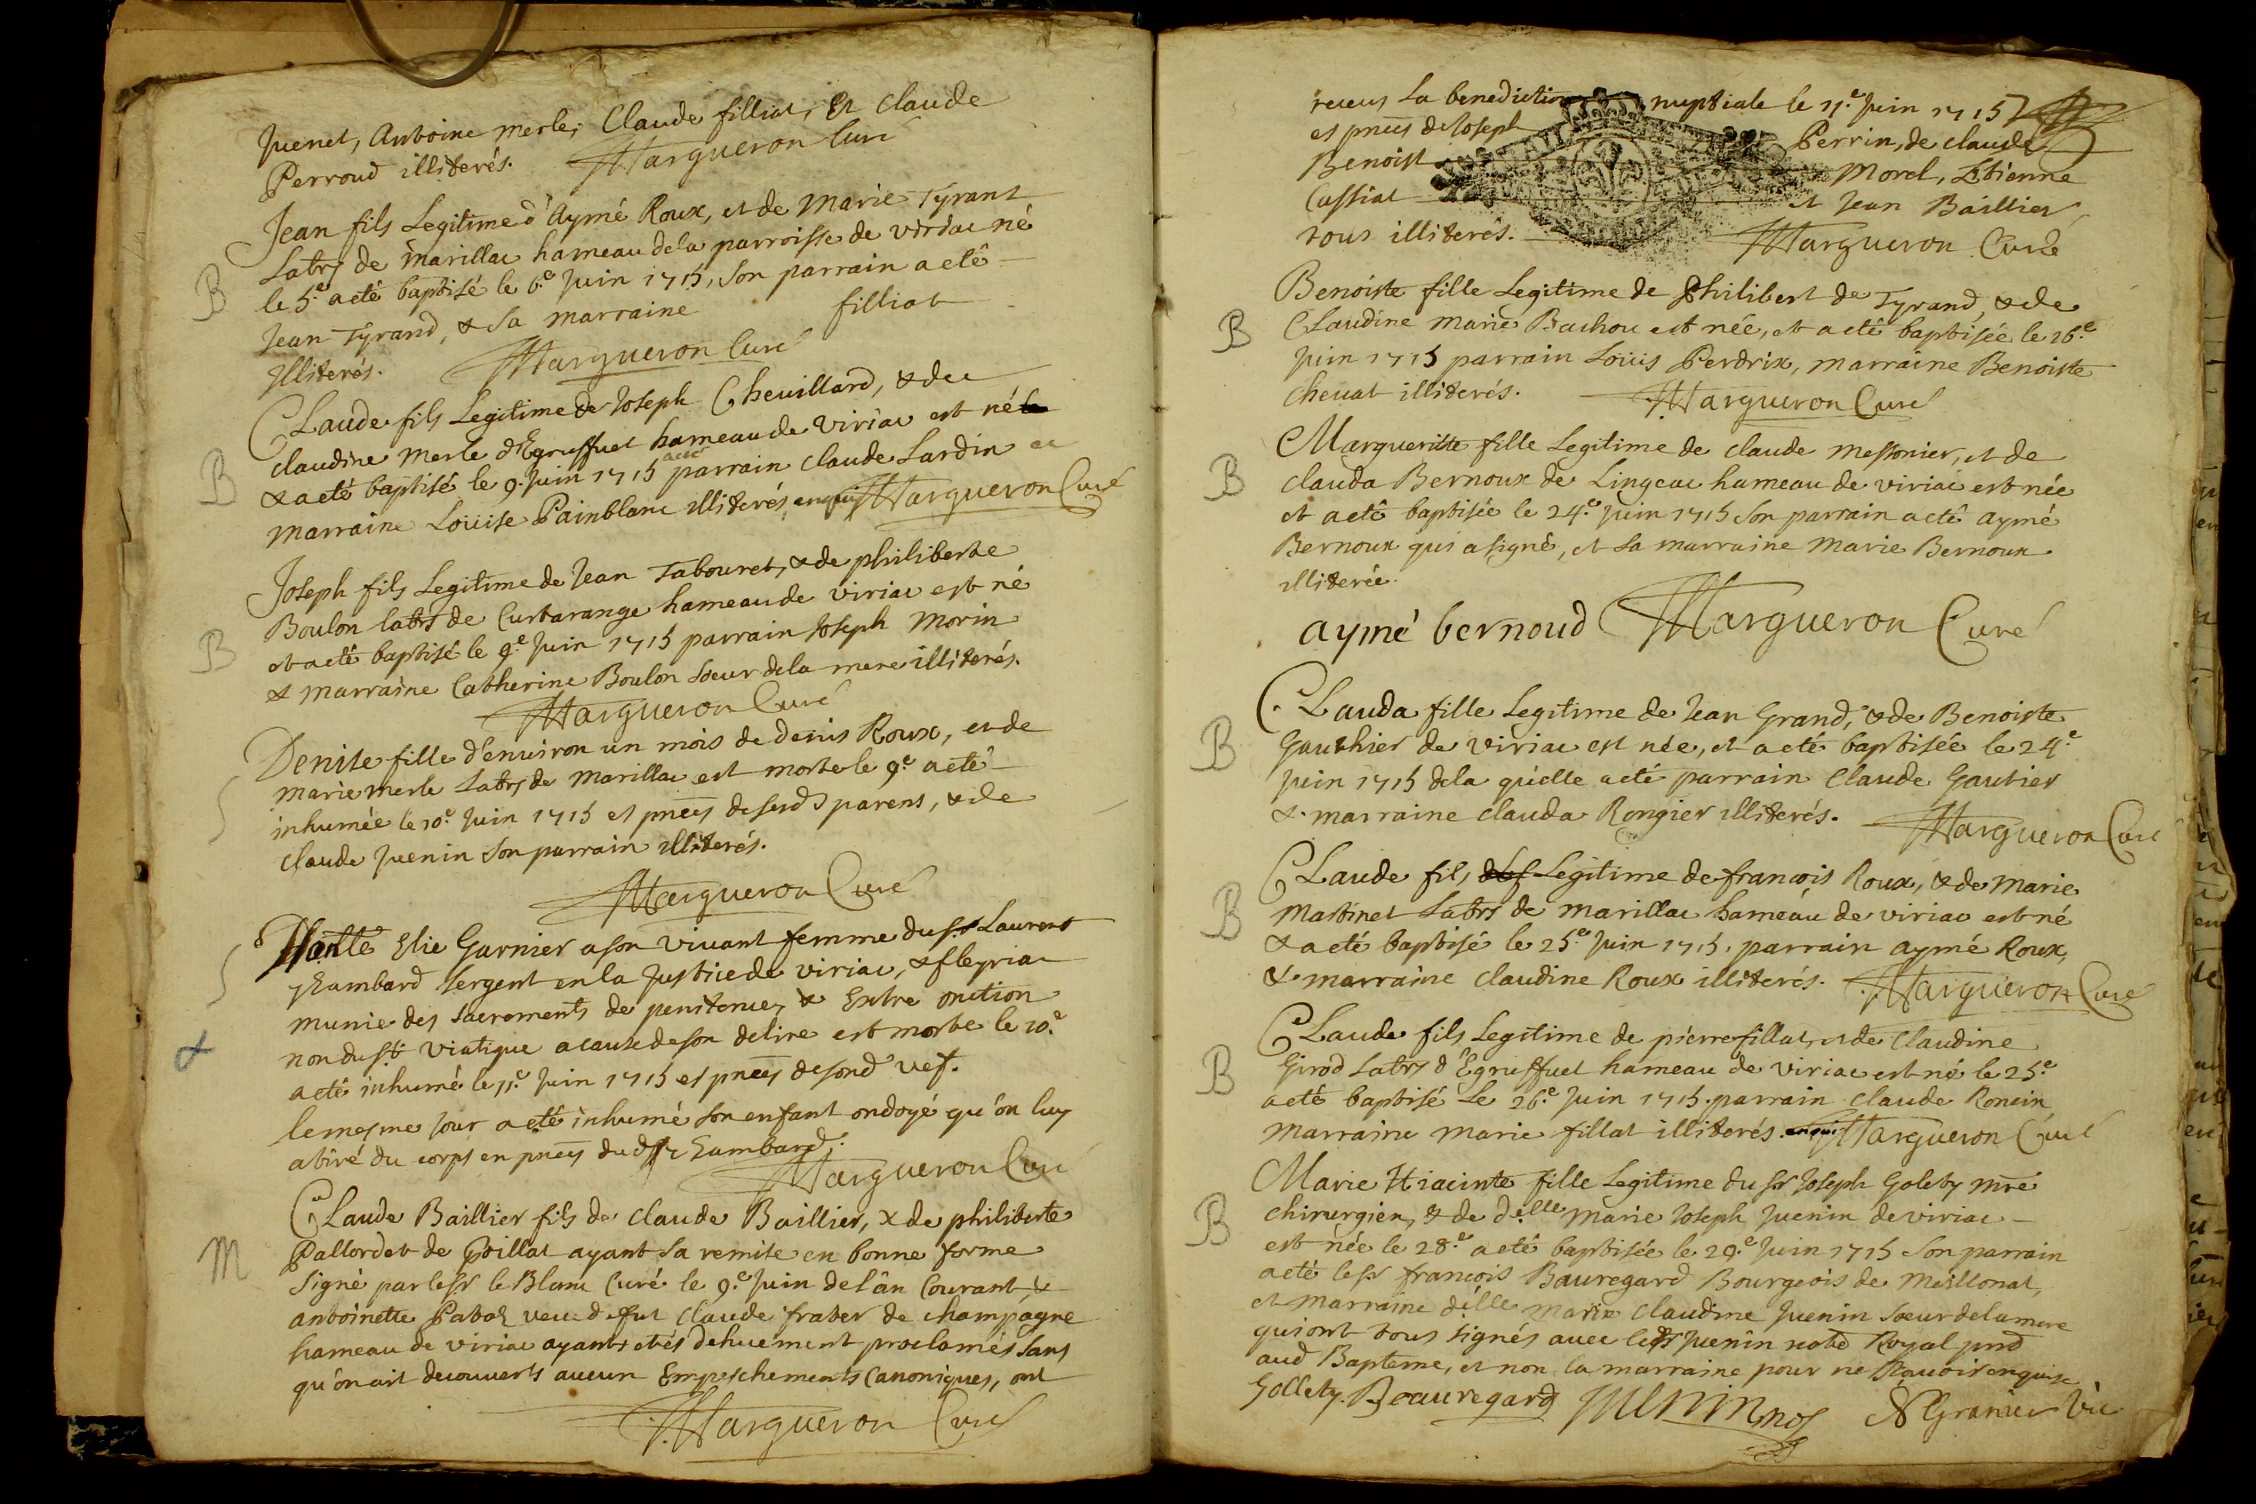 Juenet, Antoine Merle, Claude filliat, Et Claude
Perroud illiterés. Margueron Curé
Jean fils Legitime d'Aymé Roux, et de Marie Tyrant
Labrs de marillac hameau de la parroisse de viriac né
B
le 5.e a eté baptisé le 6.e Juin 1715, Son parrain a eté
Jean Tyrand, & Sa marraine filliat
Illiterés. Margueron Curé
Claude fils Legitime de Joseph Cheuillard, & de
claudine Merle d'Egreffuet hameau de viriac est né
B
& a eté baptisé le 9. Juin 1715 parrain Claude Sardin et
marraine Loüise Painblanc illiterés enquis Margueron Curé
Joseph fils Legitime de Jean Tabouret, & de philiberte
Boulon labrs de Curtarange hameau de viriac est né
B
et a eté baptisé le 9.e Juin 1715 parrain Joseph Morin
& marraine Catherine Boulon Soeur de la mere illiterés.
Margueron Curé
Denise fille d'enuiron un mois de denis Roux, et de
marie merle Labrs de Marillac est morte le 9.e a eté
S
inhumée le 10.e Juin 1715 es pnces de sesd parens, & de
Claude Juenin Son parrain illiterés.
Margueron Curé
Elie Garnier a son viuant femme du Sr Laurent
S
Eambard Sergent en la Justice de viriac, & fleyriac
munie des Sacrements de penitence, & Extre onction
non du St viatique a cause de son delire est morte le 10.e
a eté inhumé le 11.e Juin 1715 es pnces de sond vef.
le mesme Jour a eté inhumé Son enfant ondoyé qu'on luy
a tiré du corps en pnces dud Sr Eambard.
Margueron Curé
Claude Baillier fils de Claude Baillier, & de philiberte
M
Pallordet de ayant Sa remise en bonne forme
Signé par le Sr le Blanc Curé le 9.e Juin de l'an Courant, &
antoinette veuue d fut Claude frater de champagne
hameau de viriac ayants etés dehuement proclamés Sans
qu'on ait decouuerts aucun Empeschements Canoniques, ont
Margueron Curé
receus la benediction nuptiale le 11.e Juin 1715
es pnces de Joseph Perrin, de claude
Benoist Morel, Etienne
Cassiat et Jean Baillier
tous illiterés. Margueron Curé
Benoiste fille Legitime de Philibert de Tyrand, & de
B
Claudine Marie Bachou est née, et a eté baptisée le 16.e
Juin 1715 parrain Loüis Perdrix, marraine Benoiste
Cheuat illiterés. Margueron Curé
Margueritte fille Legitime de Claude Messonier, et de
B
Clauda Bernoux de Lingeac hameau de viriac est née
et a eté baptisée le 24.e Juin 1715 Son parrain a eté aymé
Bernoux qui a signé, et Sa marraine Marie Bernoux
illiterée.
aymé bernoud Margueron Curé
Clauda fille Legitime de Jean Grand, & de Benoiste
B
Gauthier de viriac est née, et a eté baptisée le 24.e
Juin 1715 de la qu'elle a eté parrain Claude Gautier
& marraine Clauda Rongier illiterés. Margueron Curé
Claude fils Legitime de francois Roux, & de Marie
B
Martinet Labrs de Marillac hameau de viriac est né
& a eté baptisé le 25.e Juin 1715. parrain aymé Roux,
& marraine Claudine Roux illiterés. Margueron Curé
Claude fils Legitime de pierre fillat, et de Claudine
B
Girod Labrs d'Egreffuet hameau de viriac est né le 25.e
a eté baptisé Le 26.e Juin 1715. parrain Claude Roncin
Marraine Marie fillat illiterés. enquis Margueron Curé
Marie Hiacinte fille Legitime du Sr Joseph Golety mre
B
chirurgien, & de delle Marie Joseph Juenin de viriac
est née le 28.e a eté baptisée le 29.e Juin 1715 Son parrain
a eté le Sr francois Bauregard Bourgeois de Meillonat,
et Marraine delle Marie Claudine Juenin Soeur de la mere
qui ont tous signés auec led Sr Juenin notre Royal pnd
aud Bapteme, et non la marraine pour ne Scauoir enquise
Gollety. Beauregard Juenin not N Granier Vic